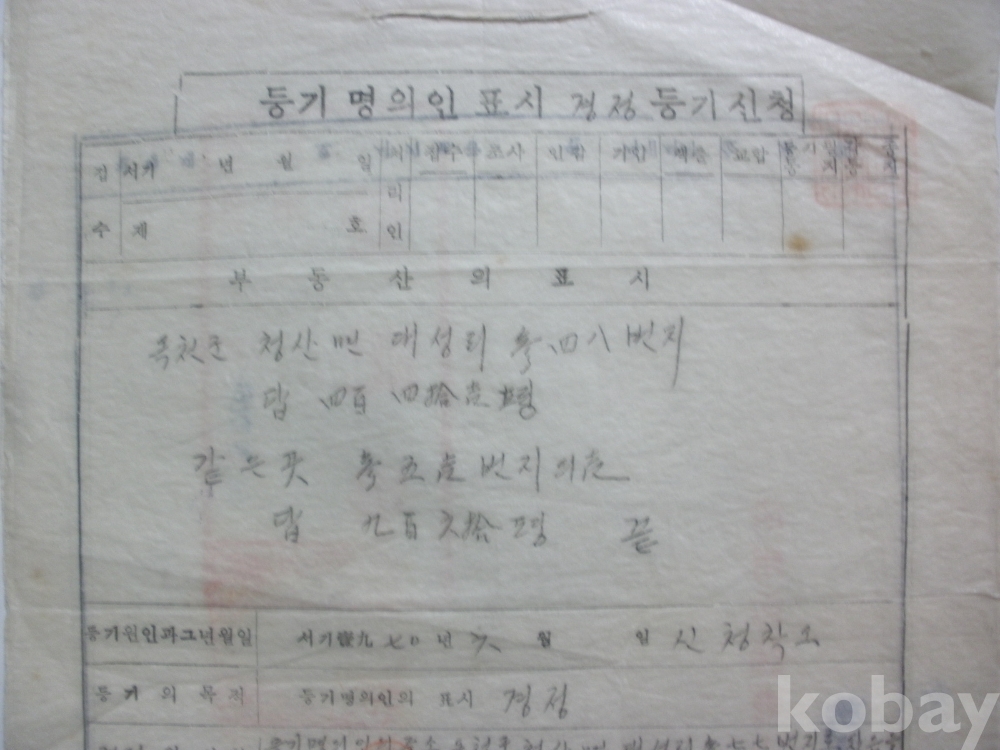 등기명의인표시 경정 등기신청
접 서기 년 월 일 접수 조사 인감 기입 교합
수 제 호 인
부동산의표시
옥천군 청산면 대성리 参四八번지
답 四百四拾壱坪
같은곳 参五壱번지의壱
답 九百六拾평 끝
등기원인과그년월일 서기壹九七0년六월 일 신청착오
등기의목적 등기명의인의 표시 경정
kobay